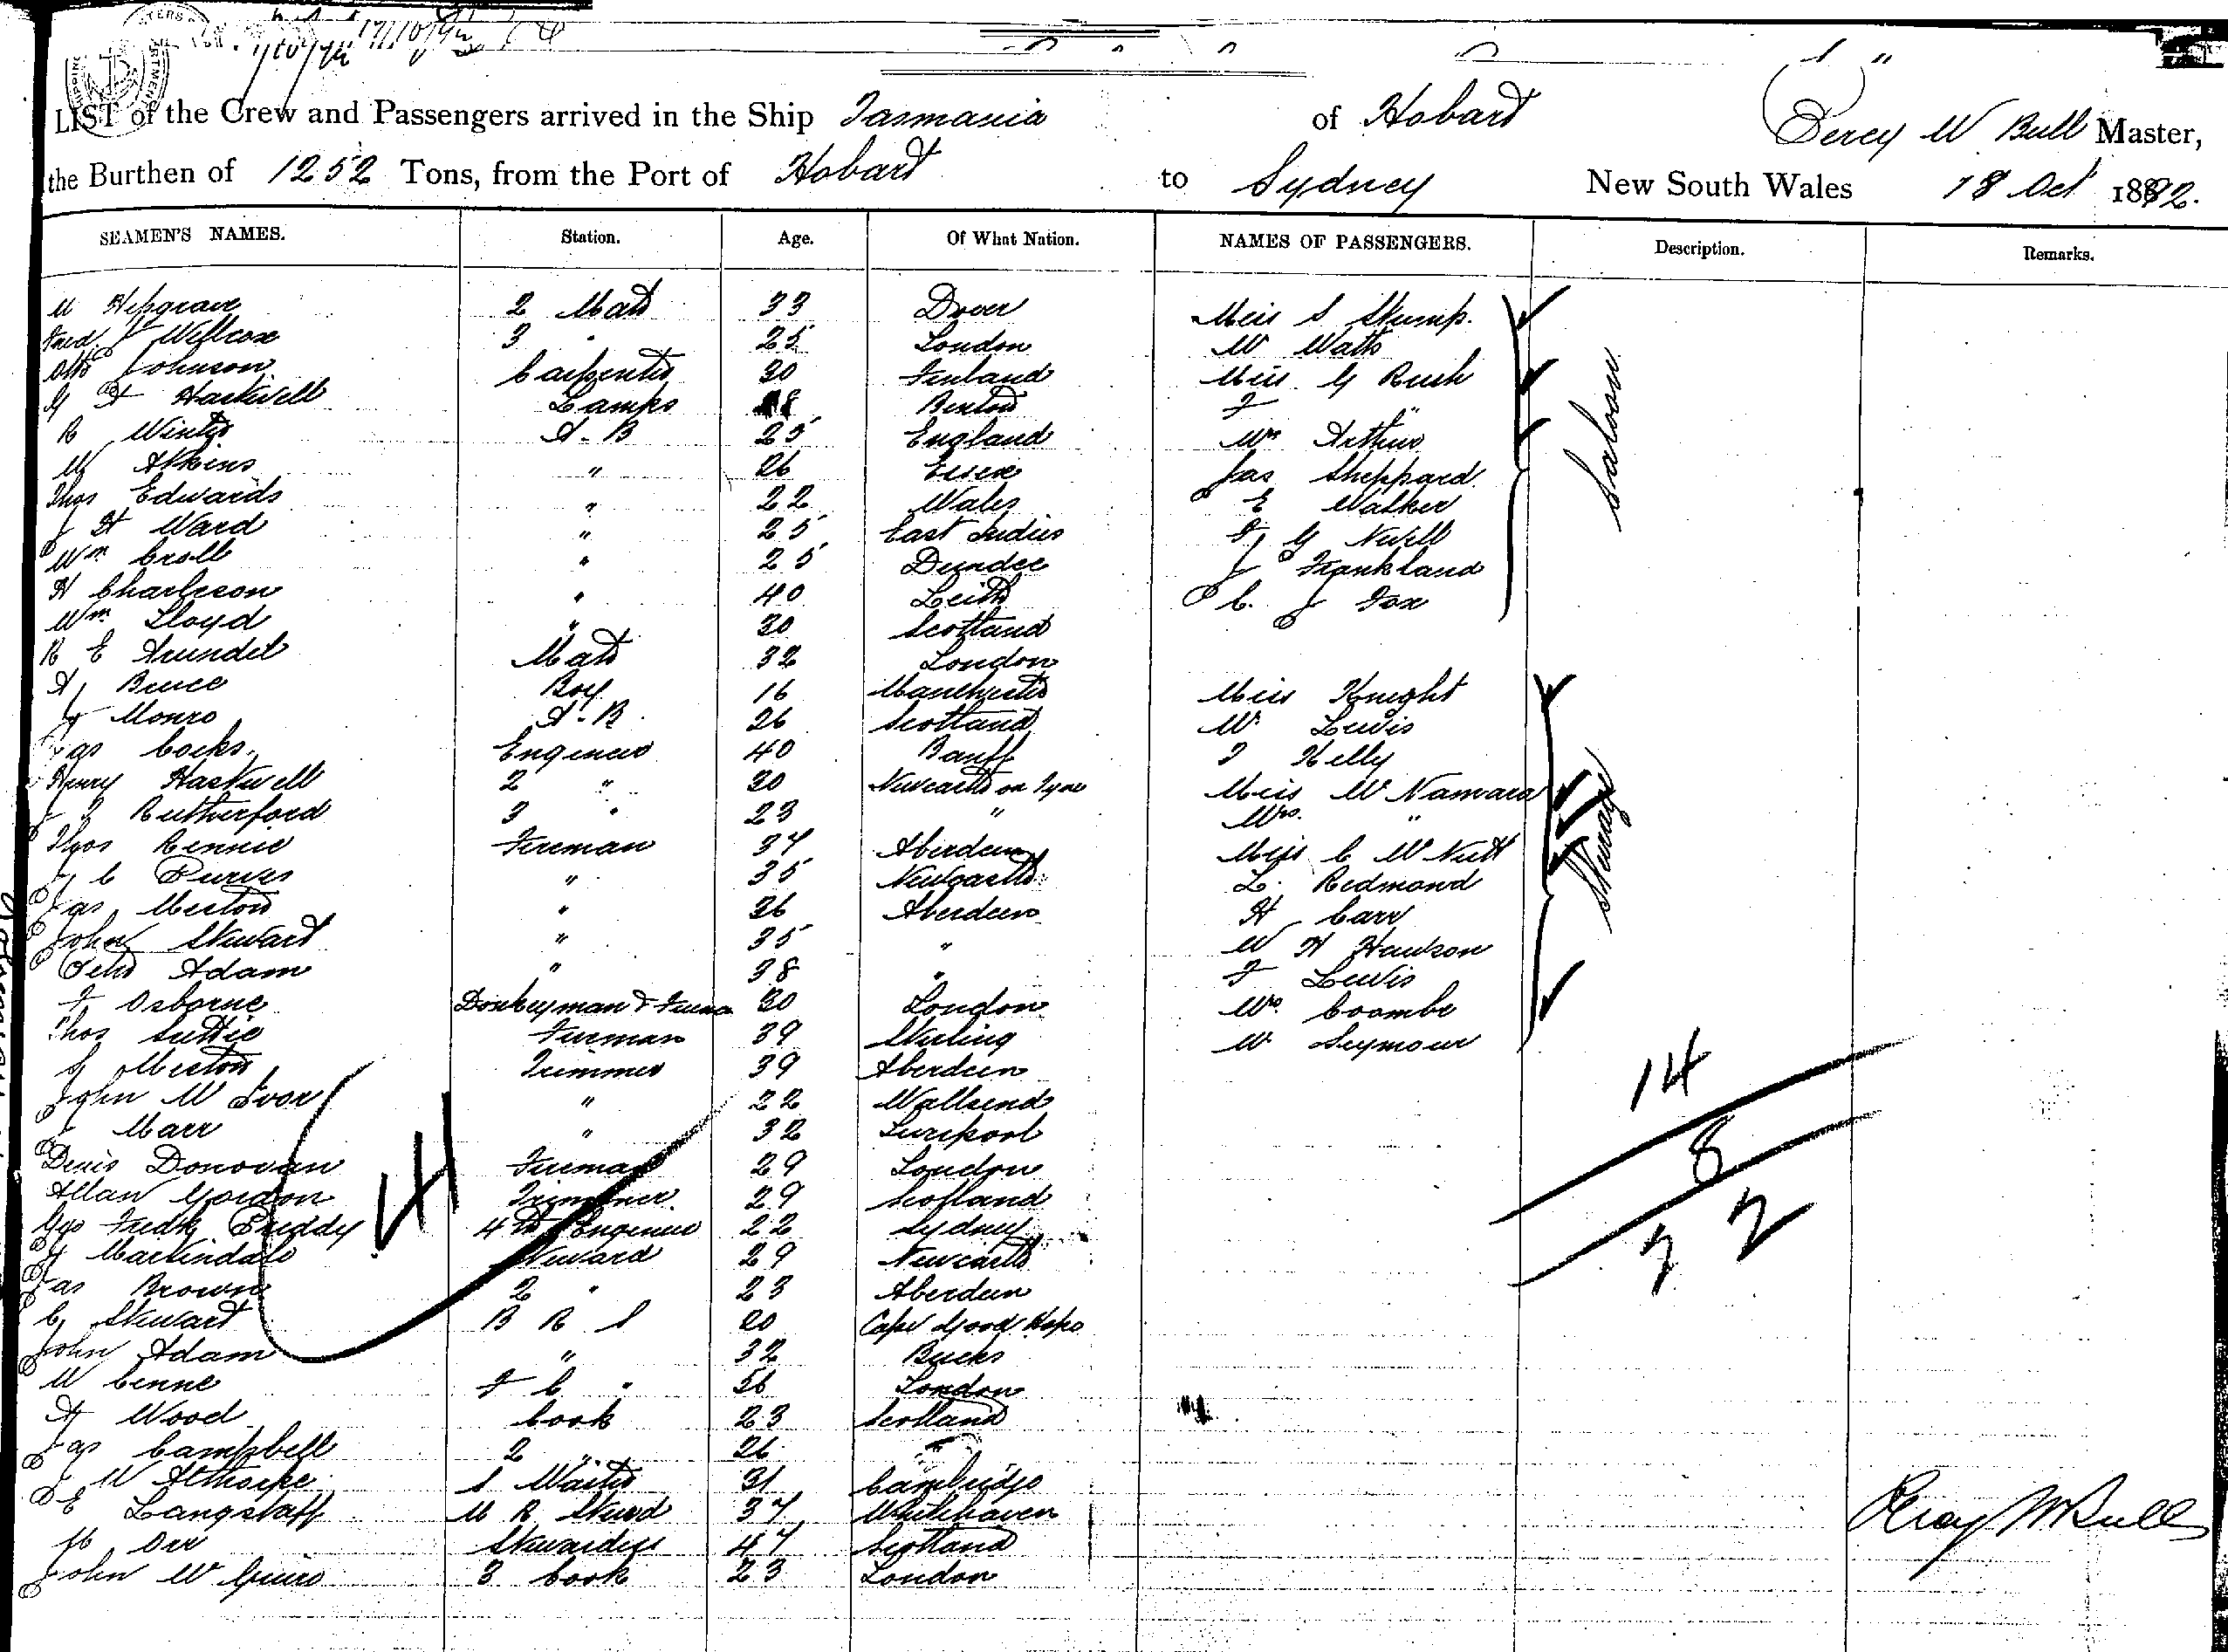 LIST of the Crew and Passengers arrived in the Ship Tasmania of Hobart Percy W Bull Master,
the Burthen of 1252 Tons, from the Port of Hobart to Sydney New South Wales 18 Oct 1892.
SEAMEN'S NAMES. Station. Age. Of What Nation. NAMES OF PASSENGERS. Description. Remarks.
2 Mate 33 Dover Miss S Stump.
Fred Willcox 3 " 25 London W Watts
Otto Johnson Carpenter 30 Finland Miss G Rush
G H Hartwell Lamps 18 F "
R Winter A-B 25 England Mrs Arthur
W Atkins " 26 Essex Jas Sheppard
Thos Edwards " 22 Wales E Walker
J H Ward " 25 East Indies G Newell
Wm Croll " 25 Dundee J Frankland
H Charleson " 40 Leith C. J Fox
Saloon
Wm Lloyd " 30 Scotland
R E Arundel Mate 32 London
A Bruce Boy 16 Manchester Miss Knight
Monro A-B 26 Scotland W. Lewis
Jas Cocks Engineer 40 Banff Kelly
Henry Hartwell 2 " 30 Newcastle on Tyne Miss McNamara
J Rutherford 3 " 23 " Mrs. "
Thos Rennie Fireman 37 Aberdeen Miss C McNutt
J C Purves " 35 Newcastle L. Redmond
Jas Meston " 26 Aberdeen H Carr
John Stewart " 35 " W H Hawson
Peter Adam " 38 " F Lewis
F Osborne Donkeyman & Fireman 30 London Mrs. Coombe
Thos Suttie Fireman 39 Stirling W Seymour
Steerage
Meston Trimmer 39 Aberdeen
John McIvor " 22 Wallsend 14
J Marr " 32 Liverpool 8
Denis Donovan Fireman 29 London
Allan Gordon Trimmer 29 Scotland
Geo Fredk Priddy 4th Engineer 22 Sydney
Martindale Steward 29 Newcastle
Jas Brown 2 " 23 Aberdeen
C Stewart B R S 20 Cape Good Hope
John Adam " 32 Bucks
W F C " London
A Wood Cook 23 Scotland
Jas Campbell 2 " 26 "
J W Althorpe S Waiter 31 Cambridge
E Langstaff M R Stewd 37 Whitehaven
Orr Stewardess 47 Scotland
John McGuire 3 Cook 23 London
Percy W Bull